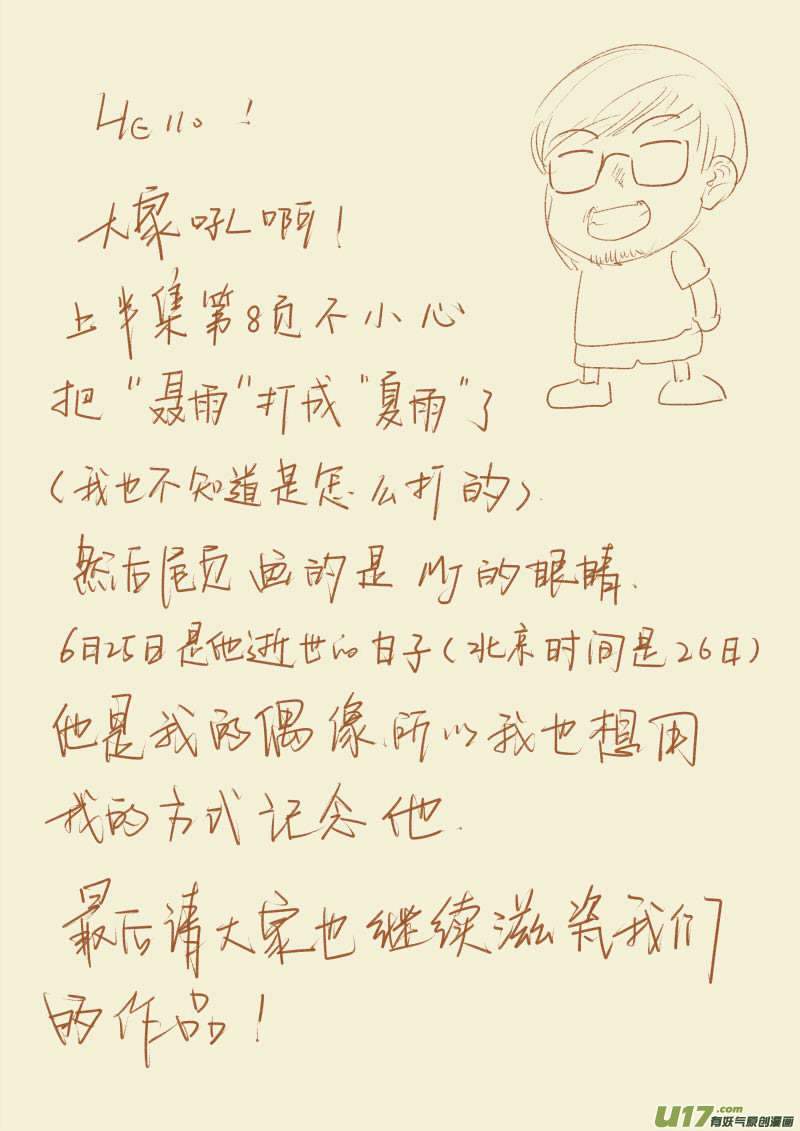 Hello!
大家吼啊!
上半集第8页不小心
把"聂雨"打成"夏雨"了
(我也不知道是怎么打的).
然后尾页画的是MJ的眼睛.
6日25日是他逝世的日子(北京时间是26日)
他是我的偶像.所以我也想用
我的方式记念他.
最后请大家也继续滋瓷我们
的作品!
U17.com
有妖气原创漫画